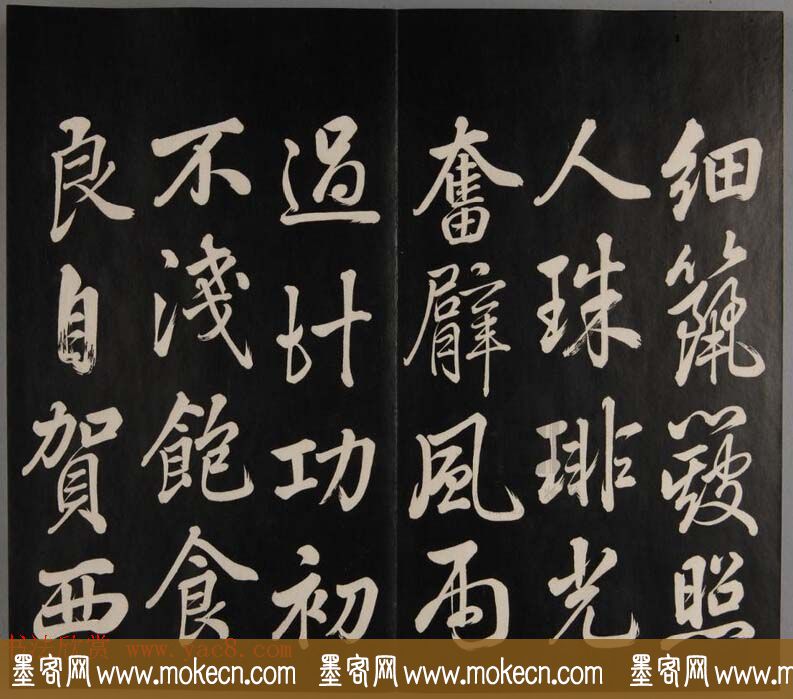 細照
人珠琲光
奮臂風雨
過計功初
不淺飽食
良自賀西
书法欣赏 www.yac8.com
墨客网 www.mokecn.com 墨客网 www.mokecn.com 墨客网 www.mokecn.com